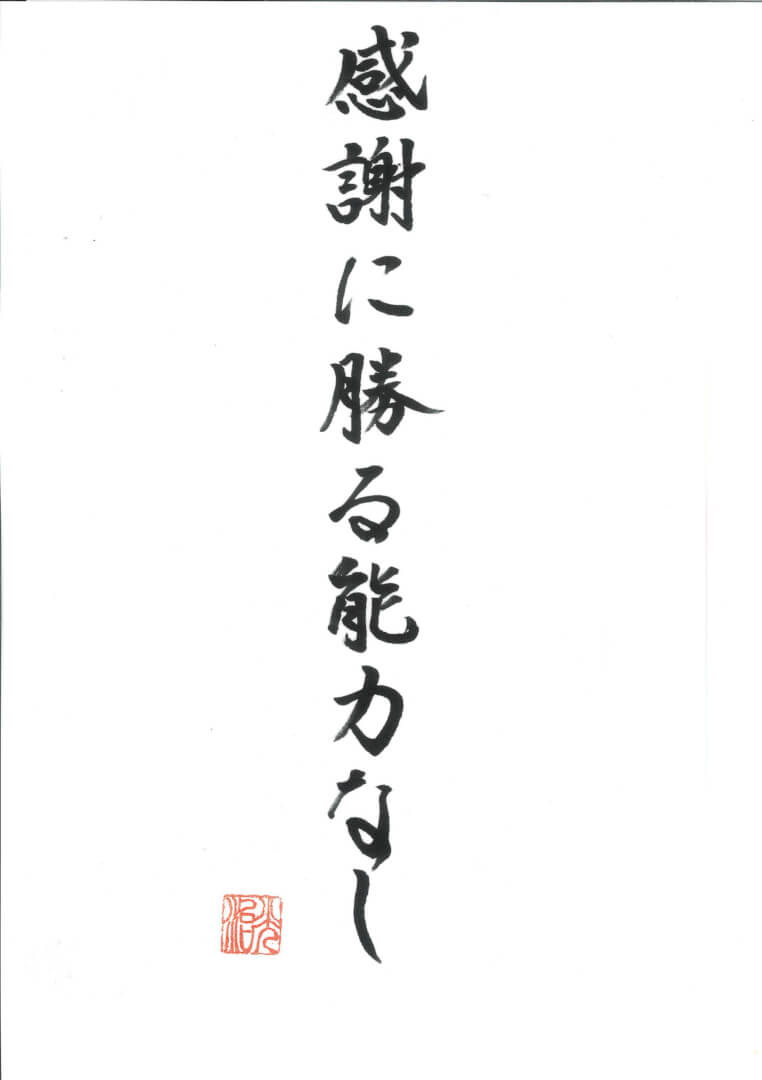 感謝に勝る能力なし